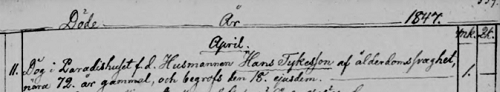 Döde År 1847.
April.
11. Dög i Paradishuset f. d. Husmannen Hans Tykesson af ålderdomsvaghet, 1.
nära 72. år gammel, och begrofs den 18. ejusdem.